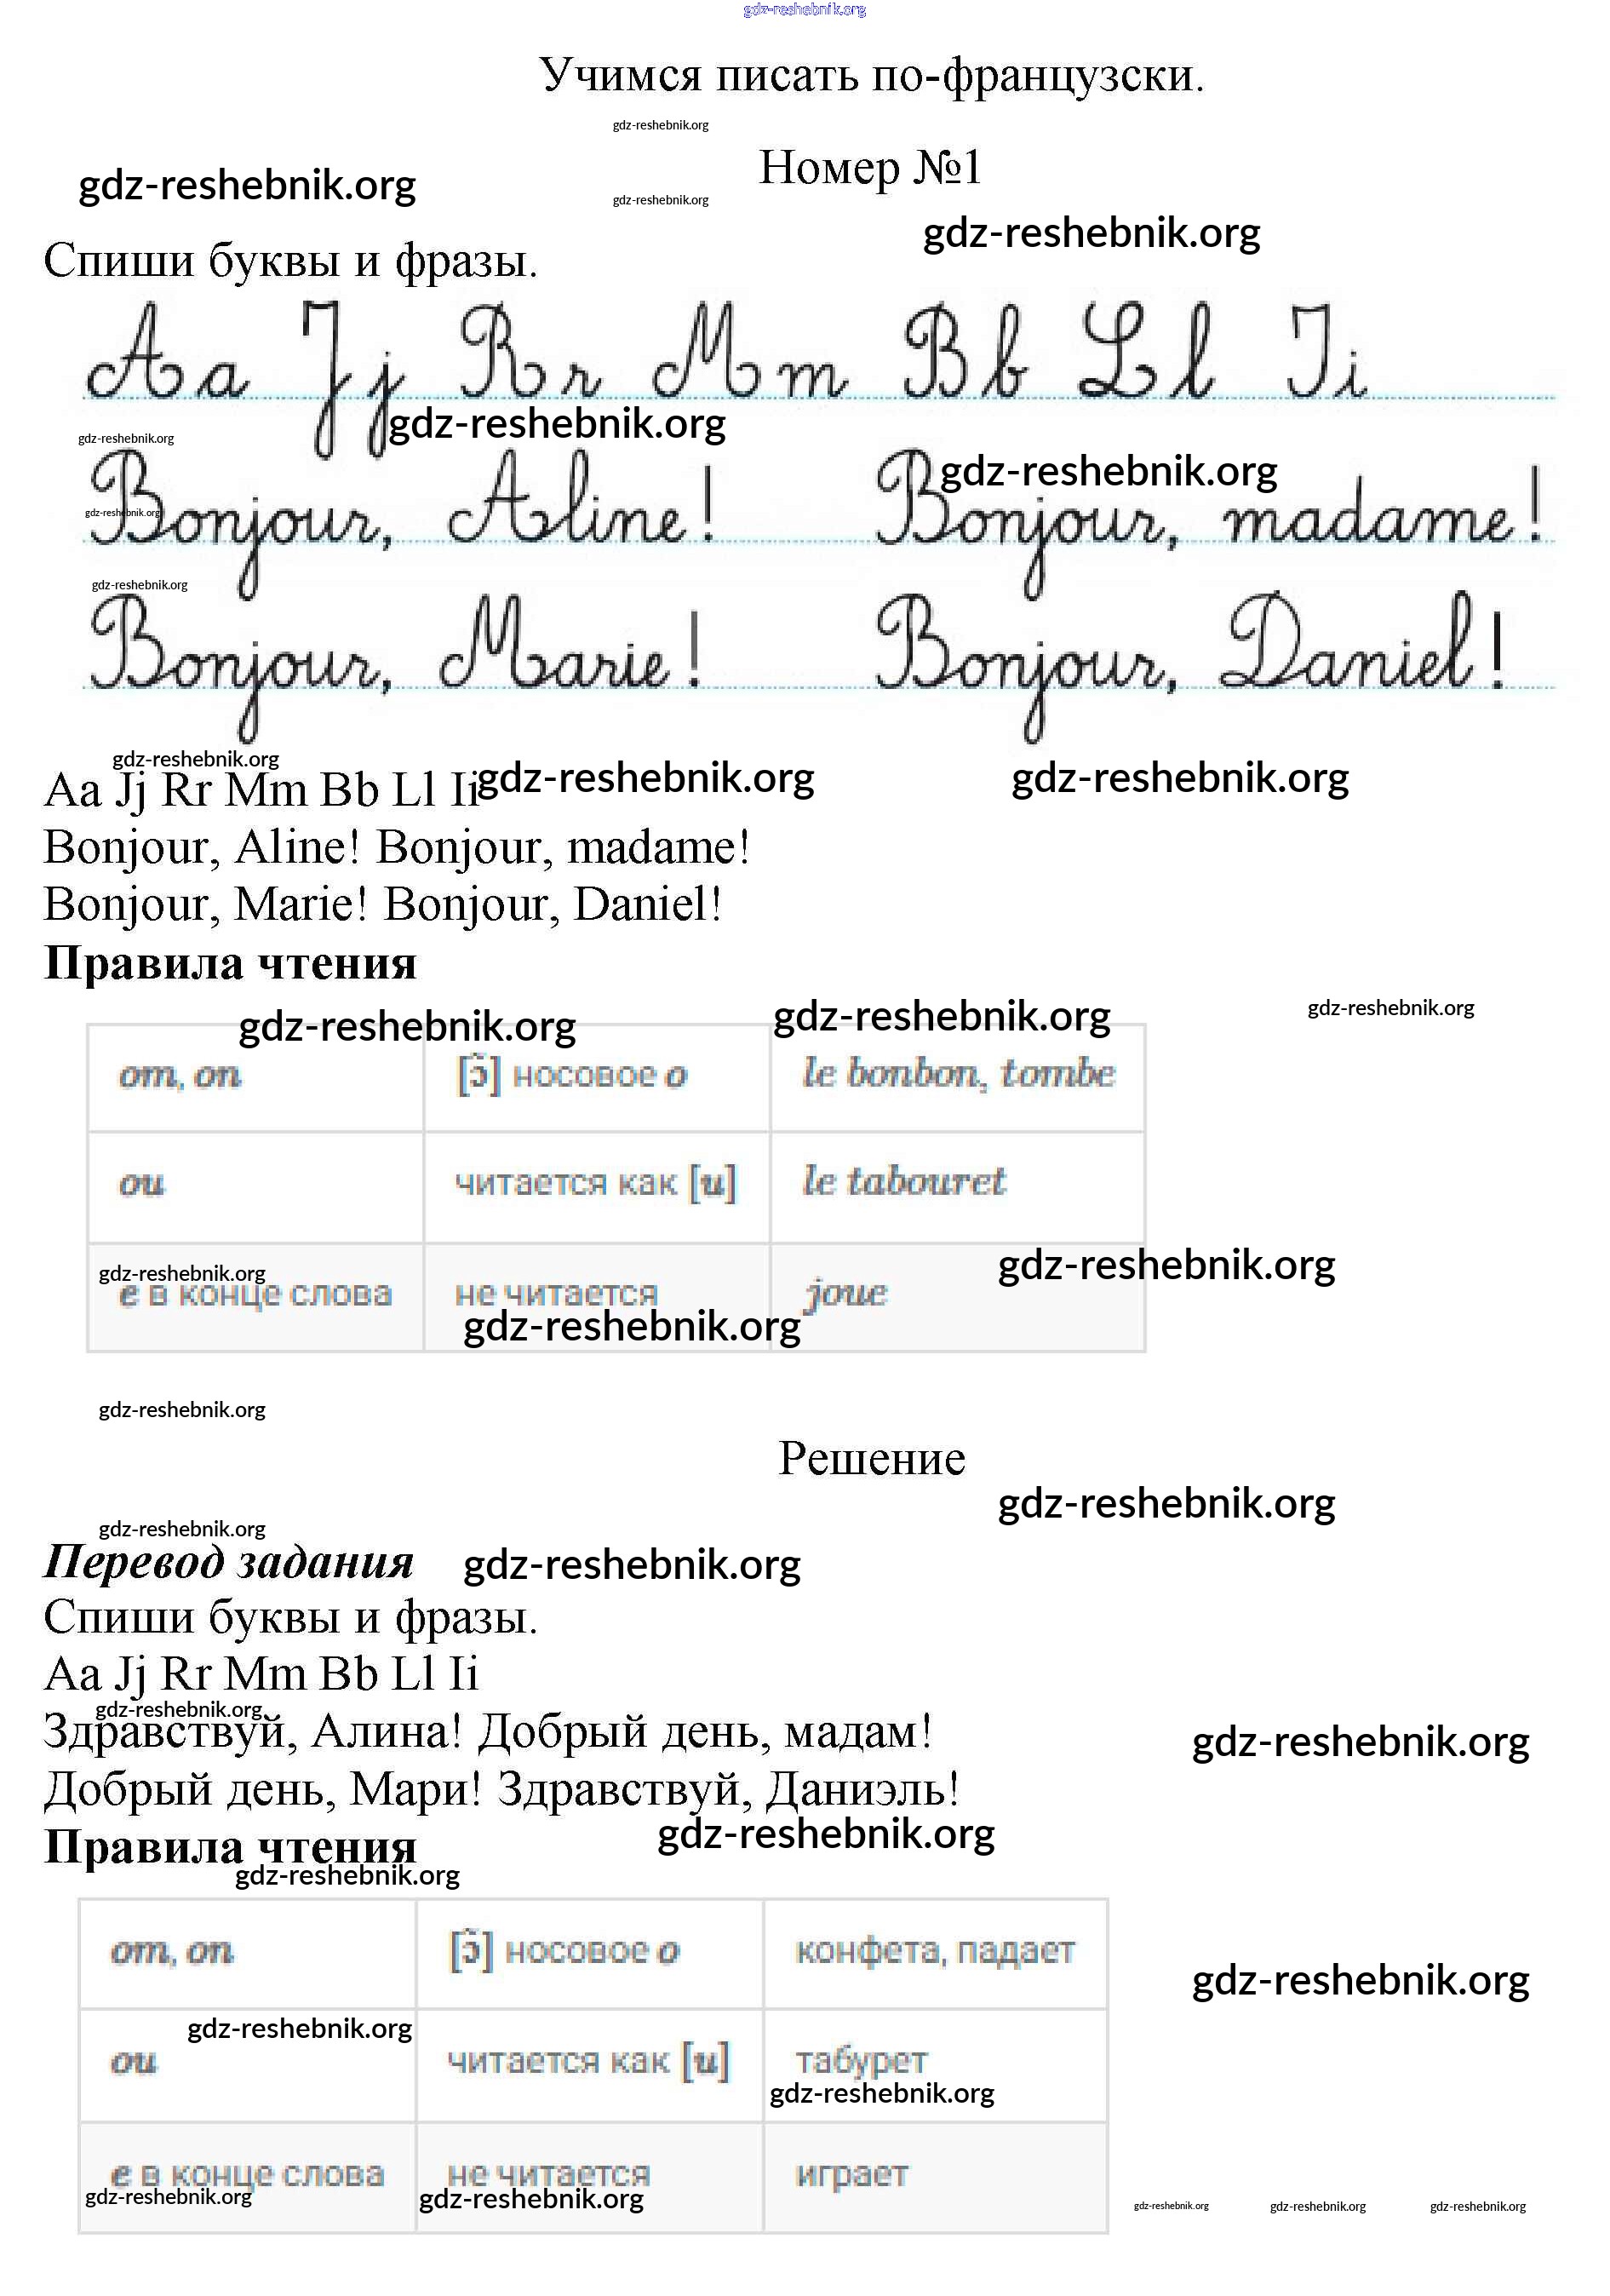 gdz-reshebnik.org
Учимся писать по-французски.
gdz-reshebnik.org
Номер №1
gdz-reshebnik.org
gdz-reshebnik.org
gdz-reshebnik.org
Спиши буквы и фразы.
Aa Jj Rr Mm Bb Ll Ii
gdz-reshebnik.org
gdz-reshebnik.org
gdz-reshebnik.org
Bonjour, Aline! Bonjour, madame!
gdz-reshebnik.org
gdz-reshebnik.org
Bonjour, Marie! Bonjour, Daniel!
gdz-reshebnik.org
gdz-reshebnik.org gdz-reshebnik.org
Aa Jj Rr Mm Bb Ll Ii
Bonjour, Aline! Bonjour, madame!
Bonjour, Marie! Bonjour, Daniel!
Правила чтения
gdz-reshebnik.org gdz-reshebnik.org gdz-reshebnik.org
om, on [ɔ̃] носовое o le bonbon, tombe
ou читается как [u] le tabouret
gdz-reshebnik.org gdz-reshebnik.org
e в конце слова не читается joue
gdz-reshebnik.org
gdz-reshebnik.org
Решение
gdz-reshebnik.org
gdz-reshebnik.org
Перевод задания gdz-reshebnik.org
Спиши буквы и фразы.
Aa Jj Rr Mm Bb Ll Ii
gdz-reshebnik.org
Здравствуй, Алина! Добрый день, мадам!
gdz-reshebnik.org
Добрый день, Мари! Здравствуй, Даниэль!
gdz-reshebnik.org
Правила чтения
gdz-reshebnik.org
om, on [ɔ̃] носовое o конфета, падает
gdz-reshebnik.org
gdz-reshebnik.org
ou читается как [u] табурет
gdz-reshebnik.org
e в конце слова не читается играет
gdz-reshebnik.org gdz-reshebnik.org gdz-reshebnik.org gdz-reshebnik.org gdz-reshebnik.org